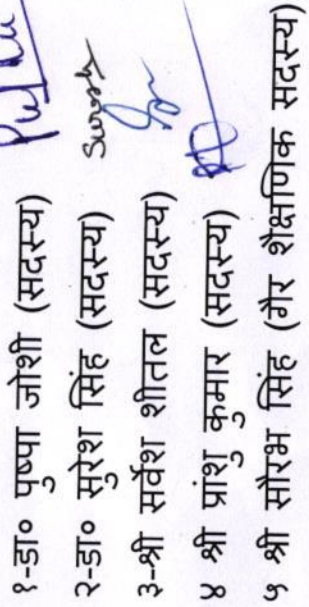 १-डा० पुष्पा जोशी (सदस्य)
२-डा० सुरेश सिंह (सदस्य) Suresh
३-श्री सर्वेश शीतल (सदस्य)
४ श्री प्रांशु कुमार (सदस्य)
५ श्री सौरभ सिंह (गैर शैक्षणिक सदस्य)